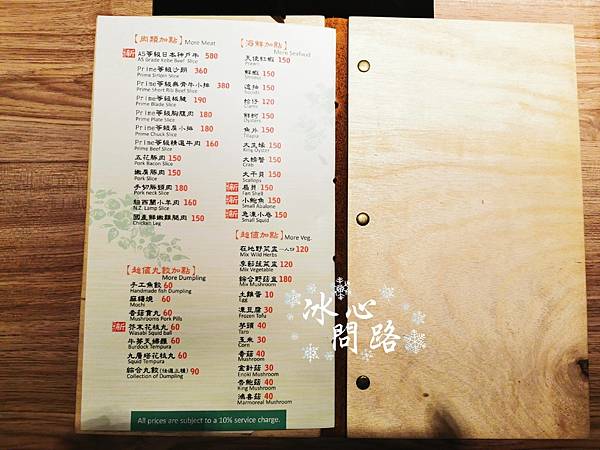 【肉類加點】More Meat
新 A5等級日本神戶牛 580
A5 Grade Kobe Beef Slice
Prime等級沙朗 360
Prime Sirloin Slice
Prime等級無骨牛小排 380
Prime Short Rib Beef Slice
Prime等級板腱 190
Prime Blade Slice
Prime等級胸腹肉 180
Prime Plate Slice
Prime等級肩小排 180
Prime Chuck Slice
Prime等級精選牛肉 160
Prime Beef Slice
五花豚肉 150
Pork Bacon Slice
嫩肩豚肉 150
Pork Slice
手切豚頸肉 180
Pork neck Slice
紐西蘭小羊肉 160
N.Z. Lamp Slice
國產鮮嫩雞腿肉 150
Chicken Leg
【超值丸餃加點】
More Dumpling
手工魚餃 60
Handmade fish Dumpling
麻糬燒 60
Mochi
香菇貢丸 60
Mushrooms Pork Pills
新 芥末花枝丸 60
Wasabi Squid ball
牛蒡天婦羅 60
Burdock Tempura
九層塔花枝丸 60
Squid Tempura
綜合丸餃(任選三種) 90
Collection of Dumpling
【海鮮加點】
More Seafood
天使紅蝦 150
Prawn
鮮蝦 150
Shrimp
透抽 150
Squids
蛤仔 150
Clams
鮮蚵 150
Oysters
魚片 150
Tilapia
大生蠔 150
King Oyster
大螃蟹 150
Crab
大干貝 150
Scallops
新 扇貝 150
Fan Shell
新 小鮑魚 150
Small Abalone
新 急凍小卷 150
Small Squid
【超值加點】More Veg.
在地野菜盅 一人份 120
Mix Wild Herbs
季節蔬菜盅 120
Mix Vegetable
綜合野菇盅 180
Mix Mushroom
土雞蛋 10
Egg
凍豆腐 30
Frozen Tofu
芋頭 40
Taro
玉米 30
Corn
香菇 40
Mushroom
金針菇 30
Enoki Mushroom
杏鮑菇 40
King Mushroom
鴻喜菇 40
Marmoreal Mushroom
All prices are subject to a 10% service charge.
冰心
問路